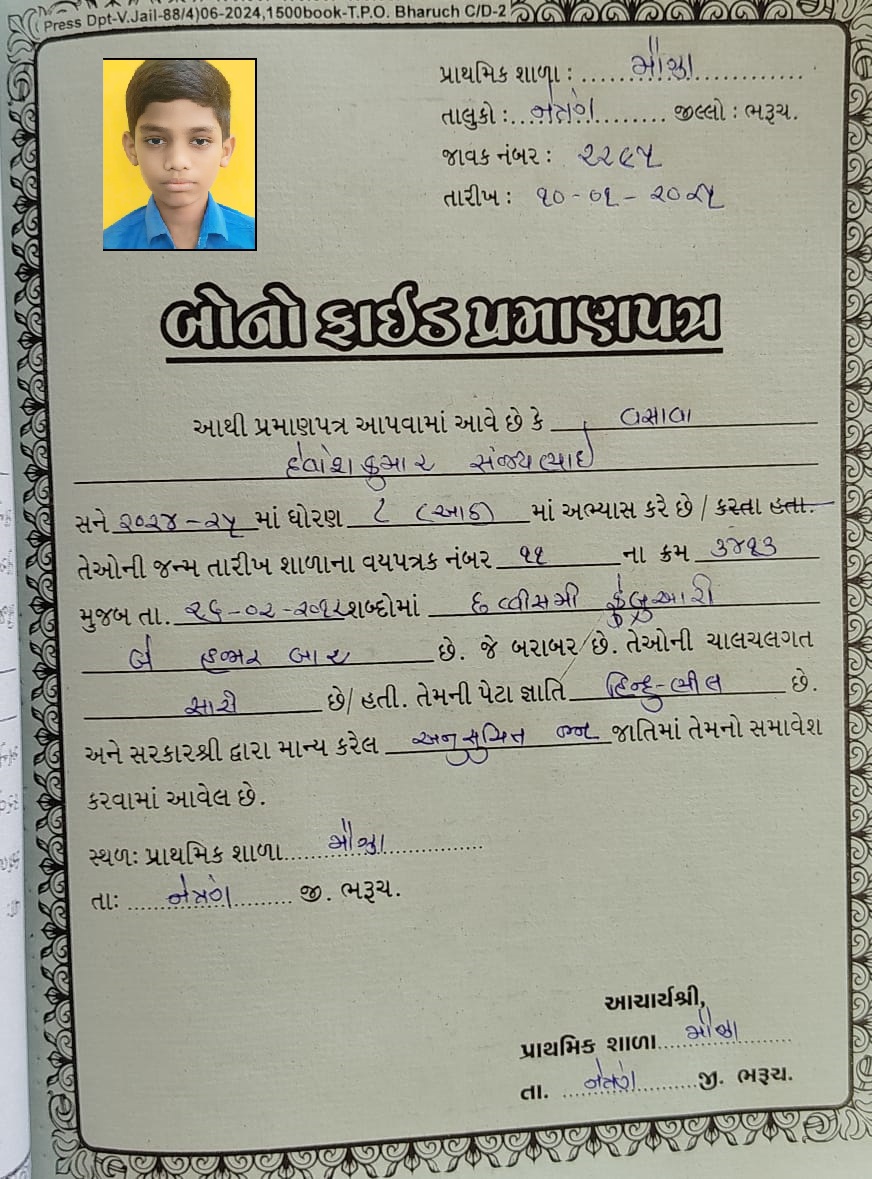 Press Dpt-V.Jail-88/4)06-2024,1500book-T.P.O. Bharuch C/D-2
પ્રાથમિક શાળા : મૌઝા
તાલુકો : નેત્રંગ જીલ્લો : ભરૂચ.
જાવક નંબર : ૨૨૯૫
તારીખ : ૧૦-૦૧-૨૦૨૫
બોનો ફાઈડ પ્રમાણપત્ર
આથી પ્રમાણપત્ર આપવામાં આવે છે કે વસાવા
દેવાંશકુમાર સંજયભાઈ
સને ૨૦૨૪-૨૫ માં ધોરણ ૮ (આઠ) માં અભ્યાસ કરે છે / કરતા હતા.
તેઓની જન્મ તારીખ શાળાના વયપત્રક નંબર ૧૧ ના ક્રમ ૩૪૧૩
મુજબ તા. ૨૬-૦૨-૨૦૧૨ શબ્દોમાં છવ્વીસમી ફેબ્રુઆરી
બે હજાર બાર છે. જે બરાબર છે. તેઓની ચાલચલગત
સારી છે/ હતી. તેમની પેટા જ્ઞાતિ હિન્દુ-ભીલ છે.
અને સરકારશ્રી દ્વારા માન્ય કરેલ અનુસુચિત જન જાતિમાં તેમનો સમાવેશ
કરવામાં આવેલ છે.
સ્થળઃ પ્રાથમિક શાળા મૌઝા
તાઃ નેત્રંગ જી. ભરૂચ.
આચાર્યશ્રી,
પ્રાથમિક શાળા મૌઝા
તા. નેત્રંગ જી. ભરૂચ.